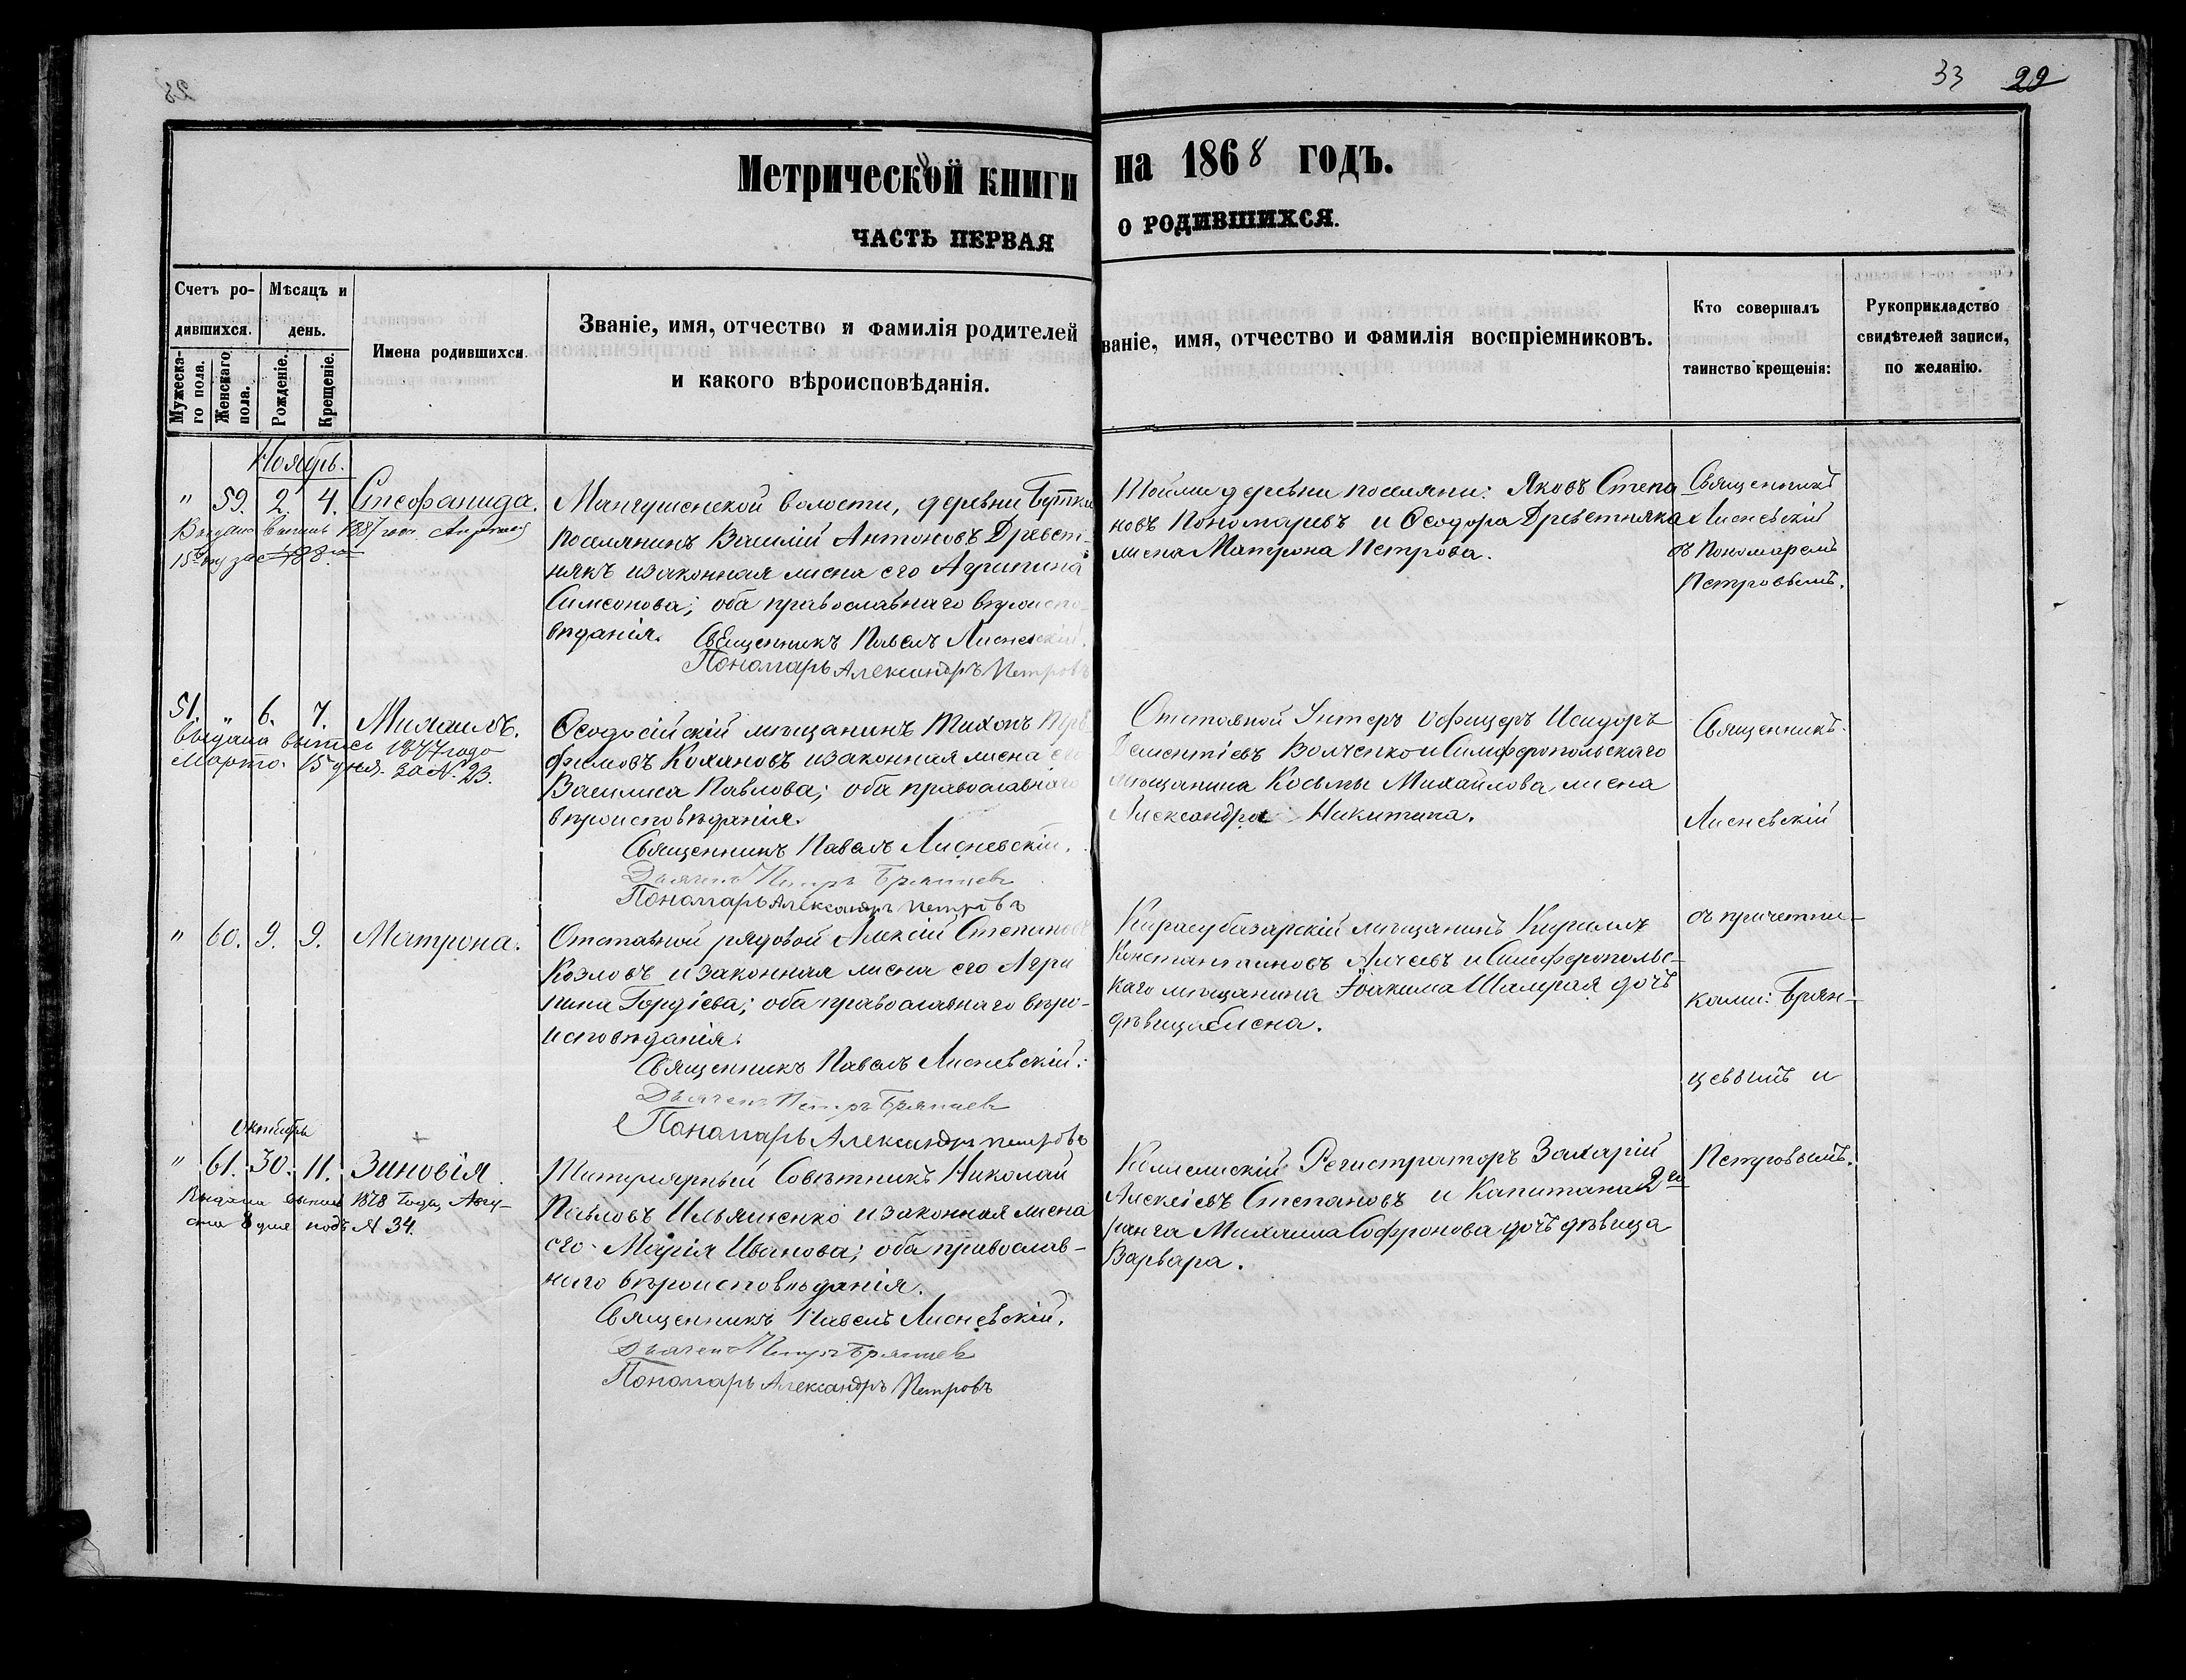 33 29
Метрической книги на 1868 годъ.
ЧАСТЬ ПЕРВАЯ О РОДИВШИХСЯ.
Счетъ ро-
дившихся.
Мужеска-
го пола.
Женскаго
пола.
Мѣсяцъ и
день.
Рожденіе.
Крещеніе.
Имена родившихся.
Званіе, имя, отчество и фамилія родителей
и какого вѣроисповѣданія.
Званіе, имя, отчество и фамилія воспріемниковъ.
Кто совершалъ
таинство крещенія:
Рукоприкладство
свидѣтелей записи,
по желанію.
Ноябрь.
" 59. 2. 4. Стефанида.
15
Мангушской волости, деревни
поселянинъ Василій Антоновъ Древет-
някъ и законная жена его Агрипина
Симеонова; оба православнаго вѣроиспо-
вѣданія. Священникъ Павелъ Лисневскій.
Пономарь Александръ Петровъ
Тойже деревни поселяни: Яковъ Степа-
новъ Пономаревъ и Ѳеодора Древетняка
жена Матрона Петрова.
Священникъ
Лисневскій
съ Пономаремъ
Петровымъ.
51. " 6. 7. Михаилъ.
Выдана выпись 1877 года
Марта 15 дня за N. 23.
Ѳеодосійскій мѣщанинъ Тихонъ
фимовъ Кохановъ и законная жена его
Василиса Павлова; оба православнаго
вѣроисповѣданія.
Священникъ Павелъ Лисневскій.
Дьячекъ Петръ Брянцевъ
Пономарь Александръ Петровъ
Отставной Унтеръ Офицеръ Исидоръ
Волченко и Симферопольскаго
мѣщанина Косьмы Михайлова, жена
Александра Никитина.
Священникъ
Лисневскій
съ причетни-
ками: Брян-
цевымъ и
Петровымъ.
" 60. 9. 9. Матрона.
Отставной рядовой Алексій Степановъ
Козловъ и законная жена его Агри
пина Гордіева; оба православнаго вѣро-
исповѣданія.
Священникъ Павелъ Лисневскій:
Дьячекъ Петръ Брянцевъ
Пономарь Александръ Петровъ
Карасубазарскій мѣщанинъ Кириллъ
Константиновъ и Симферопольс-
каго мѣщанина Іоакима дочь
дѣвица Елена.
Октябрь
" 61. 30. 11. Зиновія.
Выдана выпись 1878 года, Авгу-
ста 8 дня подъ N 34.
Титулярный Совѣтникъ Николай
Павловъ Ильяшенко и законная жена
его Марія Иванова; оба православ-
наго вѣроисповѣданія.
Священникъ Павелъ Лисневскій.
Дьячекъ Петръ Брянцевъ
Пономарь Александръ Петровъ
Коллежскій Регистраторъ Захарій
Алексіевъ Степановъ и Капитана 2го
ранга Михаила Софронова дочь дѣвица
Варвара.